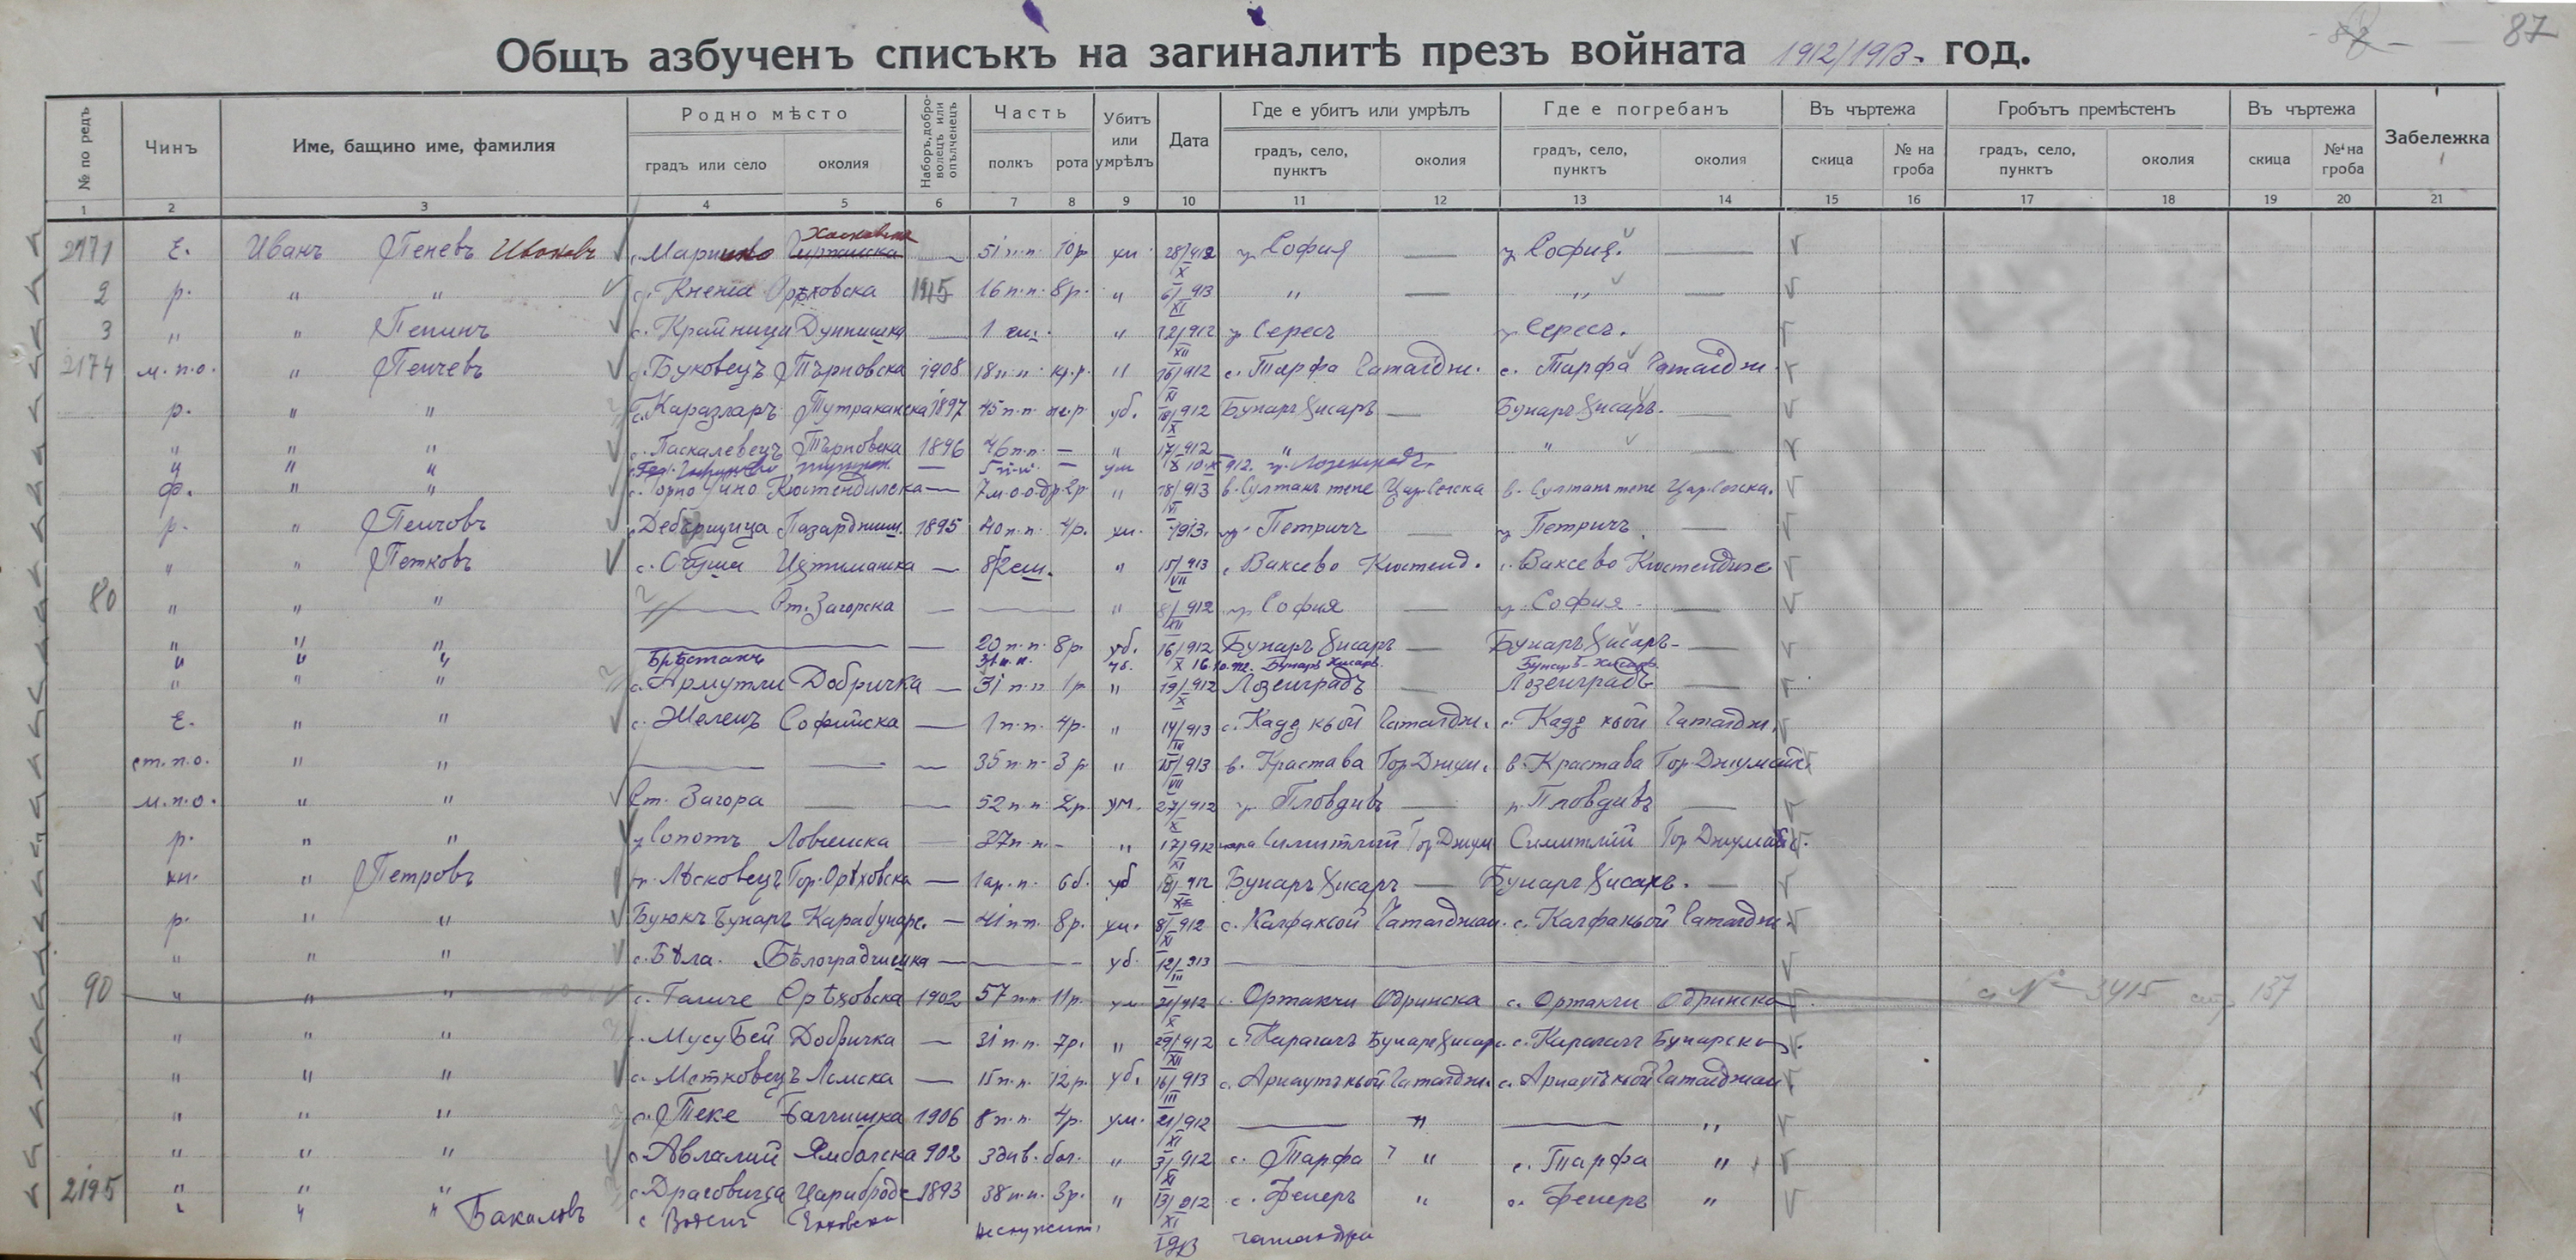 87
Общъ азбученъ списъкъ на загиналитѣ презъ войната 1912/1913 год.
№ по редъ Чинъ Име, бащино име, фамилия Родно мѣсто Наборъ, доброволецъ или опълченецъ Часть Убитъ или умрѣлъ Дата Где е убитъ или умрѣлъ Где е погребанъ Въ чъртежа Гробътъ премѣстенъ Въ чъртежа Забележка
градъ или село околия полкъ рота градъ, село, пунктъ околия градъ, село, пунктъ околия скица № на гроба градъ, село, пунктъ околия скица № на гроба
1 2 3 4 5 6 7 8 9 10 11 12 13 14 15 16 17 18 19 20 21
2171 Е. Иванъ Пеневъ с. Хасковска — 51 п.п. 10 р. ум. 28/X 912 гр. София — гр. София —
2 р. " " с. Кнежа Орѣховска 16 п.п. 8 р. " 6/XI 913 " — " —
3 " " Пенинъ с. Крайници Дупнишка — " 22/XII 912 гр. Сересъ гр. Сересъ.
2174 м.п.о. " Пенчевъ с. Буковецъ Търновска 1908 18 п.п. " 16/XI 912 с. Тарфа Чаталдж. с. Тарфа Чаталдж.
р. " " с. Каразларъ Тутраканска 1897 45 п.п. уб. 18/X 912 Бунаръ Хисаръ — Бунаръ Хисаръ —
" " " с. Паскалевецъ Търновска 1896 46 п.п. — " 17/X 912 " — " —
" " " — — ум 10.X 912 гр. Лозенградъ
ф. " " с. Горно Уйно Кюстендилска — 7 м.о.о. др. 2 р. " 18/VI 913 в. Султанъ тепе Цар. Селска в. Султанъ тепе Цар. Селска.
р. " Пенчовъ с. Дебърщица Пазарджиш. 1895 40 п.п. 4 р. ум. 1913. гр. Петричъ — гр. Петричъ —
" " Петковъ с. Ихтиманска — " 15/VII 913 с. Ваксево Кюстенд. с. Ваксево Кюстендилс
80 " " " — Ст. Загорска — — " 8/XII 912 гр. София — гр. София —
" " " — — 20 п.п. 8 р. уб. 16/X 912 Бунаръ Хисаръ — Бунаръ Хисаръ —
" " " Брѣстакъ 31 п.п. уб. 16 Бунаръ Хисаръ Бунаръ-Хисаръ
" " " с. Армутли Добричка — 31 п.п. 1 р. " 19/X 912 Лозенградъ — Лозенградъ —
Е. " " с. Желенъ Софийска — 1 п.п. 4 р. " 14/III 913 с. Кадѫ кьой Чаталдж. с. Кадѫ кьой Чаталдж.
ст.п.о. " " — — — 35 п.п. 3 р. " 15/VII 913 в. Крастава Гор. Джум. в. Крастава Гор. Джумайс.
м.п.о. " " Ст. Загора — — 52 п.п. 2 р. ум. 27/X 912 гр. Пловдивъ — гр. Пловдивъ —
р. " " с. Сопотъ Ловчанска — 27 п.п. — " 17/XI 912 Симитлий Гор. Джум. Симитлий Гор. Джумайс.
кп. " Петровъ гр. Лѣсковецъ Гор. Орѣховска — 1 ар. п. 6 б. уб 18/X 912 Бунаръ Хисаръ — Бунаръ Хисаръ. —
р. " " Буюкъ Бунаръ Карабунарс. — 41 п.п. 8 р. ум. 8/XI 912 с. Калфакьой Чаталджан. с. Калфакьой Чаталдж.
" " " с. Бѣла. Бѣлоградчишка — — — уб. 12/III 913 — —
90 " " " с. Галиче Орѣховска 1902 57 п.п. 11 р. ум 21/X 912 с. Ортакчи Одринска с. Ортакчи Одринска с № 3415 стр 137
" " " с. Мусу Бей Добричка — 31 п.п. 7 р. " 29/XII 912 с. Карагачъ Бунархисар. с. Карагачъ Бунарско
" " " с. Метковецъ Ломска — 15 п.п. 12 р. уб. 16/III 913 с. Арнаутъ кьой Чаталдж. с. Арнаутъ кьой Чаталджан
" " " с. Теке Балчишка 1906 8 п.п. 4 р. ум. 21/XI 912 — " — "
" " " с. Авлалий Ямболска 902 3 див. бол. " 3/XI 912 с. Тарфа " с. Тарфа "
2195 " " " с. Драговища Царибродс 1893 38 п.п. 3 р. " 13/XI 912 с. Фенеръ " с. Фенеръ "
" " " Бакаловъ с Еленска 1913 Чаталджа